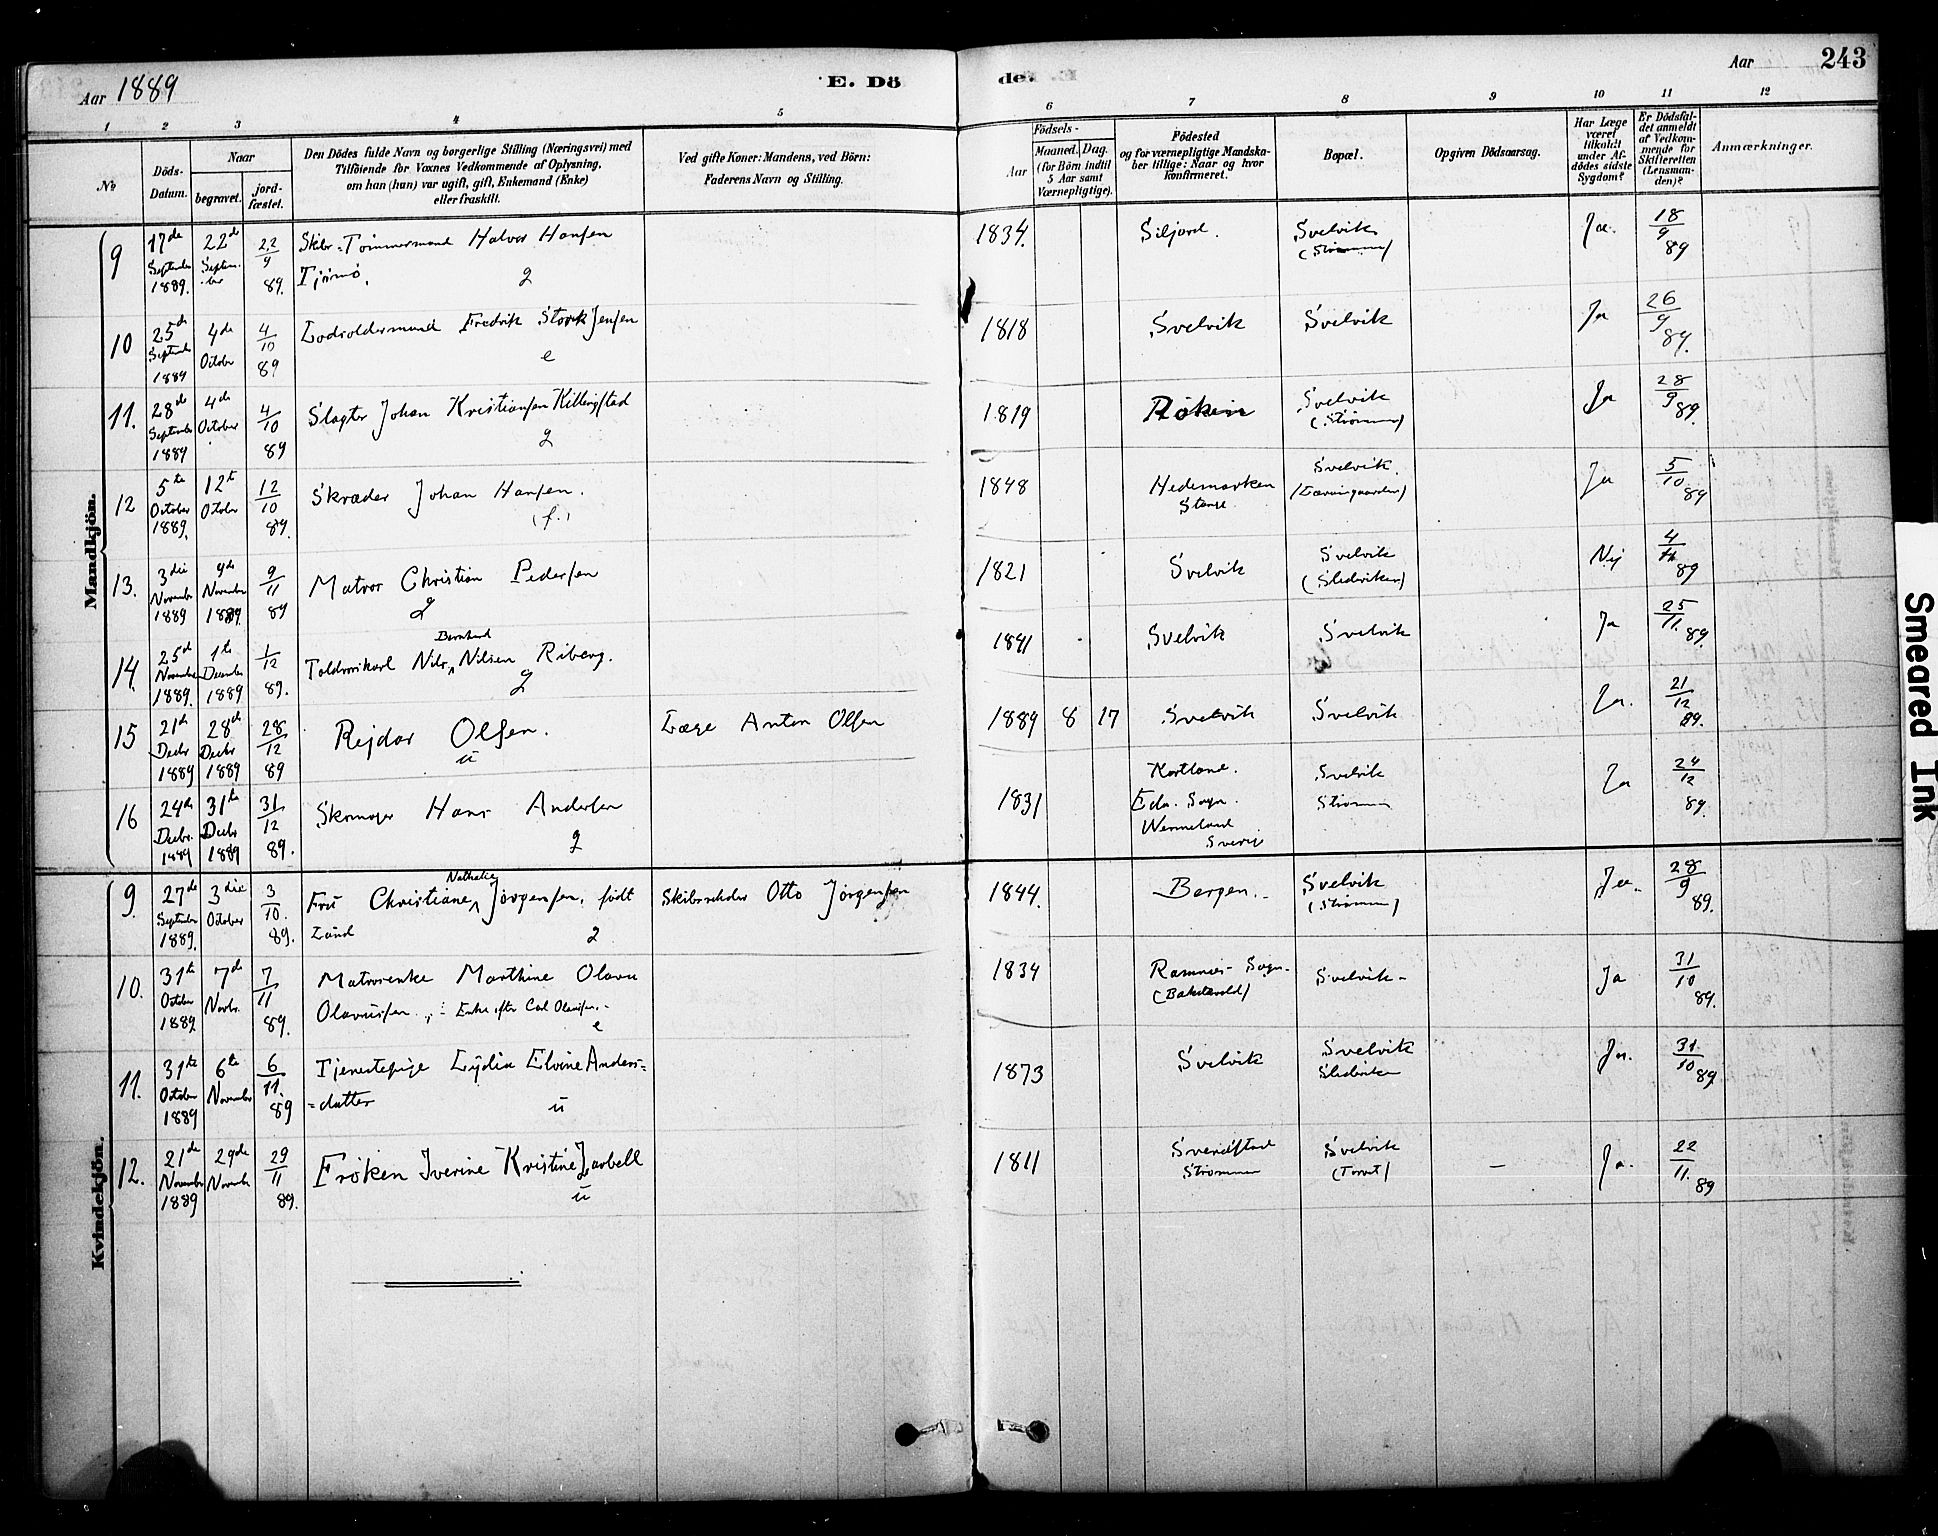 Aar 1889
E. Dö
de.
Aar
243
1 2 3 4 5 6 7 8 9 10 11 12
№
Döds-
Datum.
Naar
begravet.
jord-
fæstet.
Den Dödes fulde Navn og borgerlige Stilling (Næringsvei) med
Tilföiende for Voxnes Vedkommende af Oplysning,
om han (hun) var ugift, gift, Enkemand (Enke)
eller fraskilt.
Ved gifte Koner: Mandens, ved Börn:
Faderens Navn og Stilling.
Födsels-
Aar
Maaned. Dag.
(for Börn indtil
5 Aar samt
Værnepligtige).
Födested
og for værnepligtige Mandska-
ber tillige: Naar og hvor
konfirmeret.
Bopæl.
Opgiven Dödsaarsag.
Har Læge
været
tilkaldt
under Af-
dödes sidste
Sygdom?
Er Dödsfal-
det anmeldt
af Vedkom-
mende for
Skifteretten
(Lensman-
den)?
Anmærkninger.
Mandkjön.
9 17de September 1889. 22de September 22/9 89. Skibs-Tømmermand Halvor Hansen
Tjømø. g
1834. Siljord. Svelvik (Strømmen) Ja. 18/9 89
10 25de September 1889 4de October 4/10 89 Lodsoldermand Fredrik Stork Jensen
e
1818 Svelvik Svelvik Ja 26/9 89.
11. 28de September 1889 4de October 4/10 89 Slagter Johan Kristiansen Killingstad
g
1819 Røken Svelvik (Strømmen) Ja 28/9 89.
12 5te October 1889. 12te October 12/10 89. Skræder Johan Hansen.
(f.)
1848 Hedemarken Stange Svelvik. Ja 5/10 89
13. 3die November 1889 9de November 1889. 9/11 89 Matros Christian Pedersen
g
1821 Svelvik Svelvik (Sledviken) Nej 4/11 89
14. 25de November 1889. 1ste December 1889 1/12 89. Toldroerkarl Nils Bernhard Nilsen Riberg.
g
1841 Svelvik Svelvik Ja 25/11. 89.
15 21de Decbr 1889 28de Decbr 1889 28/12 89 Rejdar Olsen.
ü
Læge Anton Olsen 1889 8 17 Svelvik Svelvik Ja. 21/12 89.
16 24de Decbr. 1889 31te Decbr 1889 31/12 89. Skomager Hans Andersen
g
1831 Eda Sogn. Wermeland Sverig Svelvik Strømmen Ja 24/12 89.
Kvindekjön.
9. 27de September 1889. 3die October 3/10. 89. Fru Christiane Nathalie Jörgensen, født
Lund g
Skibsreder Otto Jörgensen 1844. Bergen. Svelvik (Strømmen) Ja. 28/9 89.
10. 31te October 1889 7de Novbr. 7/11 89. Matrosenke Marthine Olava
Olavussen Enke efter Carl Olavussen.
e
1834 Ramnæs Sogn. Svelvik Ja 31/10 89.
11. 31te October 1889 6te November 6/11. 89 Tjenestepige Lydia Elvine Anders-
-datter ü
1873 Svelvik Svelvik Sledviken Ja. 31/10 89
12. 21de November 1889 29de November 29/11 89. Frøken Iverine Kristine Zarbell
ü
1811 Strømmen Svelvik (Torvet) — Ja. 22/11. 89
Smeared Ink